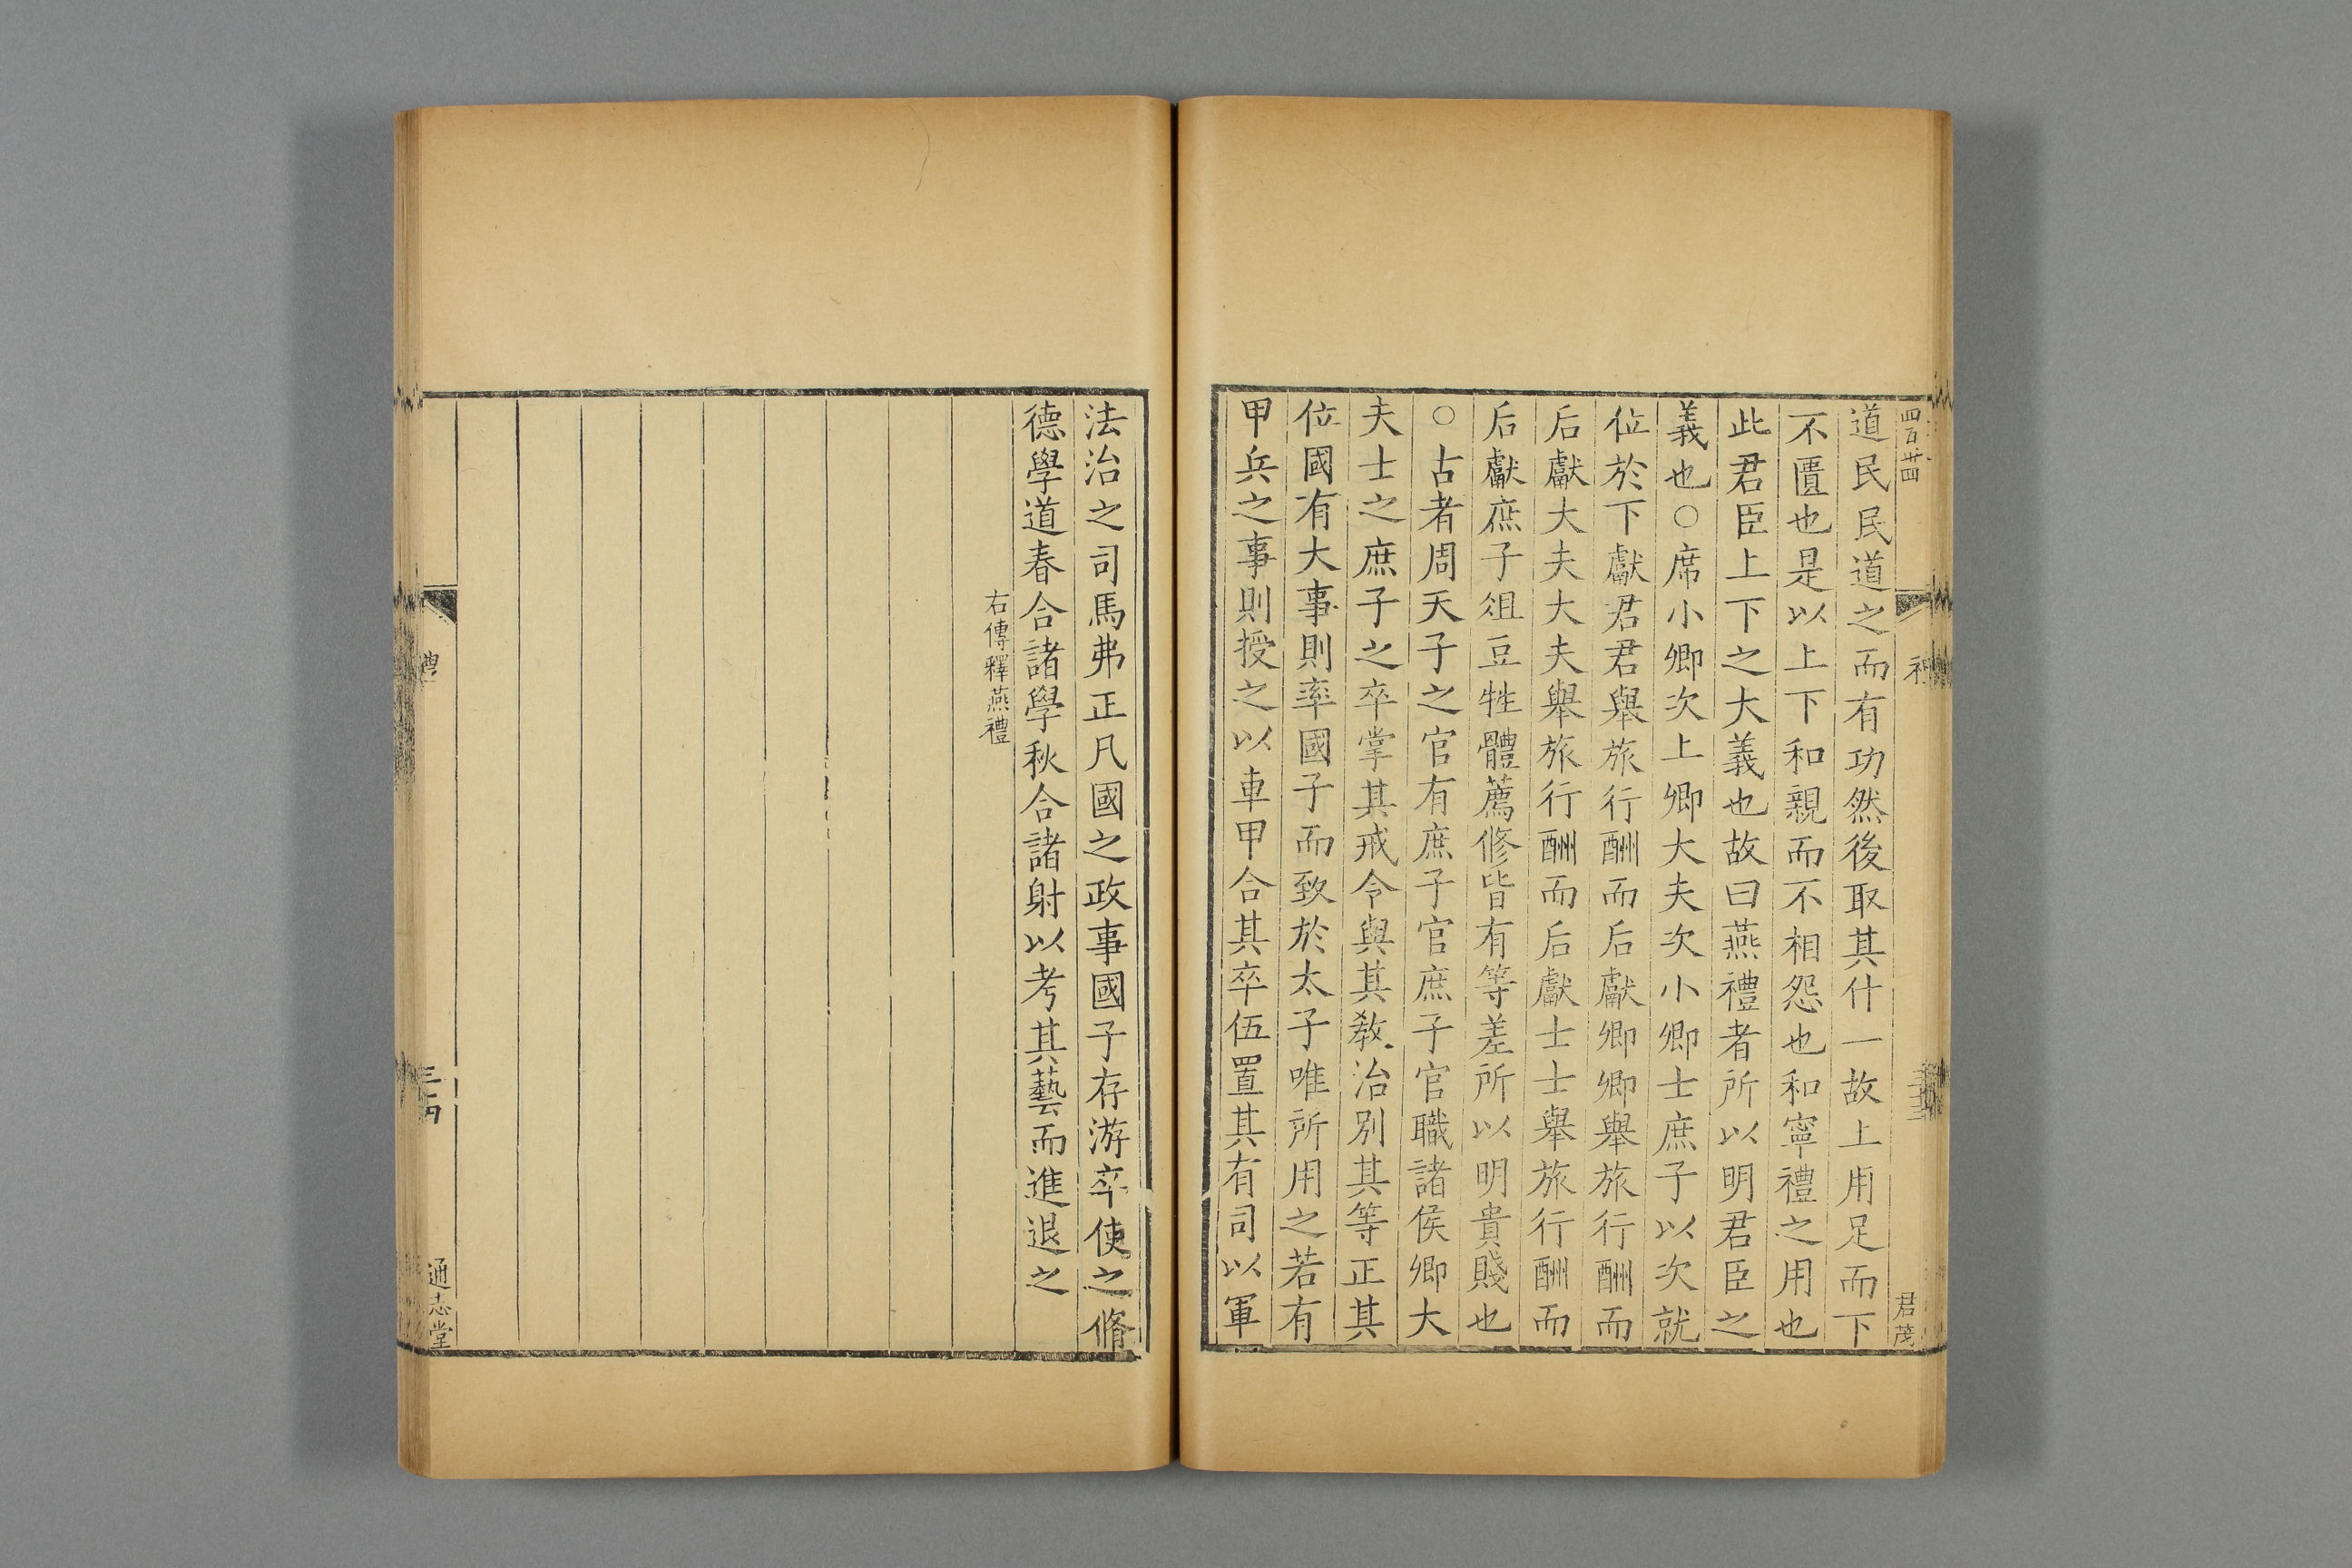 四百廿四
君茂
道民民道之而有功然後取其什一故上用足而下
不匱也是以上下和親而不相怨也和寧禮之用也
此君臣上下之大義也故曰燕禮者所以明君臣之
義也○席小卿次上卿大夫次小卿士庶子以次就
位於下獻君君舉旅行酬而后獻卿卿舉旅行酬而
后獻大夫大夫舉旅行酬而后獻士士舉旅行酬而
后獻庶子俎豆牲體薦修皆有等差所以明貴賤也
○古者周天子之官有庶子官庶子官職諸侯卿大
夫士之庶子之卒掌其戒令與其教治別其等正其
位國有大事則率國子而致於太子唯所用之若有
甲兵之事則授之以車甲合其卒伍置其有司以軍
法治之司馬弗正凡國之政事國子存游卒使之脩
德學道春合諸學秋合諸射以考其藝而進退之
右傳釋燕禮
通志堂